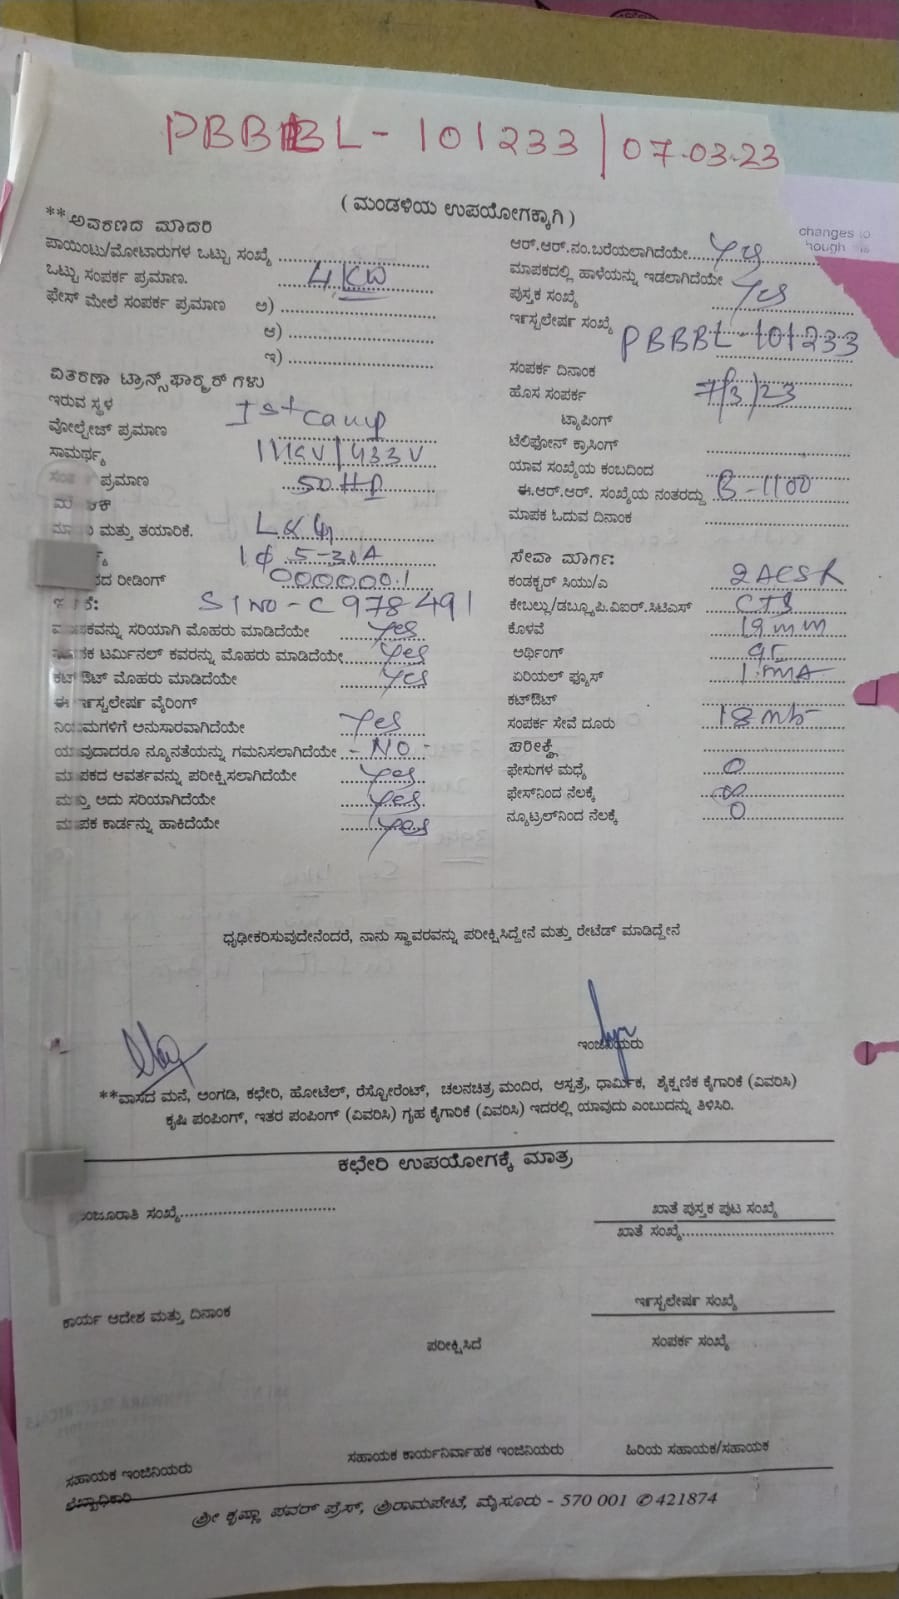 PBBBL - 101233 / 07.03.23
( ಮಂಡಳಿಯ ಉಪಯೋಗಕ್ಕಾಗಿ )
changes to
hough
**ಅವರಣದ ಮಾದರಿ
ಪಾಯಿಂಟು/ಮೋಟಾರುಗಳ ಒಟ್ಟು ಸಂಖ್ಯೆ
ಒಟ್ಟು ಸಂಪರ್ಕ ಪ್ರಮಾಣ. 4 KW
ಫೇಸ್ ಮೇಲೆ ಸಂಪರ್ಕ ಪ್ರಮಾಣ ಅ)
ಆ)
ಇ)
ವಿತರಣಾ ಟ್ರಾನ್ಸ್‌ಫಾರ್ಮ‌ರ್ ಗಳು
ಇರುವ ಸ್ಥಳ Ist camp
ವೋಲ್ಟೇಜ್ ಪ್ರಮಾಣ
ಸಾಮರ್ಥ್ಯ 11KV/433V
ಪ್ರಮಾಣ 50 HP
ಮತ್ತು ತಯಾರಿಕೆ. L&G
1φ 5-30A
ರೀಡಿಂಗ್ 000000.1
Sl NO - C978491
ಸರಿಯಾಗಿ ಮೊಹರು ಮಾಡಿದೆಯೇ Yes
ಟರ್ಮಿನಲ್ ಕವರನ್ನು ಮೊಹರು ಮಾಡಿದೆಯೇ Yes
ಕಟ್‌ಔಟ್ ಮೊಹರು ಮಾಡಿದೆಯೇ Yes
ಈ ಇನ್‌ಸ್ಟಲೇಷನ್ ವೈರಿಂಗ್
ನಿಯಮಗಳಿಗೆ ಅನುಸಾರವಾಗಿದೆಯೇ Yes
ಯಾವುದಾದರೂ ನ್ಯೂನತೆಯನ್ನು ಗಮನಿಸಲಾಗಿದೆಯೇ - NO -
ಮಾಪಕದ ಆವರ್ತವನ್ನು ಪರೀಕ್ಷಿಸಲಾಗಿದೆಯೇ Yes
ಮತ್ತು ಅದು ಸರಿಯಾಗಿದೆಯೇ Yes
ಮಾಪಕ ಕಾರ್ಡನ್ನು ಹಾಕಿದೆಯೇ Yes
ಆರ್.ಆರ್.ನಂ.ಬರೆಯಲಾಗಿದೆಯೇ Yes
ಮಾಪಕದಲ್ಲಿ ಹಾಳೆಯನ್ನು ಇಡಲಾಗಿದೆಯೇ Yes
ಪುಸ್ತಕ ಸಂಖ್ಯೆ
ಇನ್‌ಸ್ಟಲೇಷನ್ ಸಂಖ್ಯೆ PBBBL-101233
ಸಂಪರ್ಕ ದಿನಾಂಕ
ಹೊಸ ಸಂಪರ್ಕ 7/3/23
ಟ್ಯಾಪಿಂಗ್
ಟೆಲಿಫೋನ್ ಕ್ರಾಸಿಂಗ್
ಯಾವ ಸಂಖ್ಯೆಯ ಕಂಬದಿಂದ
ಈ.ಆರ್.ಆರ್. ಸಂಖ್ಯೆಯ ನಂತರದ್ದು B-1100
ಮಾಪಕ ಓದುವ ದಿನಾಂಕ
ಸೇವಾ ಮಾರ್ಗ:
ಕಂಡಕ್ಟರ್ ಸಿಯು/ಎ 2ACSR
ಕೇಬಲ್ಲು/ಡಬ್ಲ್ಯೂ.ಪಿ.ವಿಐಆರ್.ಸಿಟಿಎಸ್ CTS
ಕೊಳವೆ 19mm
ಅರ್ಥಿಂಗ್
ಏರಿಯಲ್ ಫ್ಯೂಸ್
ಕಟ್‌ಔಟ್
ಸಂಪರ್ಕ ಸೇವೆ ದೂರು 18 mt
ಪರೀಕ್ಷೆ
ಫೇಸುಗಳ ಮಧ್ಯೆ 0
ಫೇಸ್‌ನಿಂದ ನೆಲಕ್ಕೆ ∞
ನ್ಯೂಟ್ರಲ್‌ನಿಂದ ನೆಲಕ್ಕೆ 0
ಧೃಢೀಕರಿಸುವುದೇನೆಂದರೆ, ನಾನು ಸ್ಥಾವರವನ್ನು ಪರೀಕ್ಷಿಸಿದ್ದೇನೆ ಮತ್ತು ರೇಟೆಡ್ ಮಾಡಿದ್ದೇನೆ
ಇಂಜಿನಿಯರು
**ವಾಸದ ಮನೆ, ಅಂಗಡಿ, ಕಛೇರಿ, ಹೋಟೆಲ್, ರೆಸ್ಟೋರೆಂಟ್, ಚಲನಚಿತ್ರ ಮಂದಿರ, ಆಸ್ಪತ್ರೆ, ಧಾರ್ಮಿಕ, ಶೈಕ್ಷಣಿಕ ಕೈಗಾರಿಕೆ (ವಿವರಿಸಿ)
ಕೃಷಿ ಪಂಪಿಂಗ್, ಇತರ ಪಂಪಿಂಗ್ (ವಿವರಿಸಿ) ಗೃಹ ಕೈಗಾರಿಕೆ (ವಿವರಿಸಿ) ಇದರಲ್ಲಿ ಯಾವುದು ಎಂಬುದನ್ನು ತಿಳಿಸಿರಿ.
ಕಛೇರಿ ಉಪಯೋಗಕ್ಕೆ ಮಾತ್ರ
ಮಂಜೂರಾತಿ ಸಂಖ್ಯೆ
ಖಾತೆ ಪುಸ್ತಕ ಪುಟ ಸಂಖ್ಯೆ
ಖಾತೆ ಸಂಖ್ಯೆ
ಇನ್‌ಸ್ಟಲೇಷನ್ ಸಂಖ್ಯೆ
ಕಾರ್ಯ ಆದೇಶ ಮತ್ತು ದಿನಾಂಕ
ಪರೀಕ್ಷಿಸಿದೆ
ಸಂಪರ್ಕ ಸಂಖ್ಯೆ
ಸಹಾಯಕ ಇಂಜಿನಿಯರು
ಸಹಾಯಕ ಕಾರ್ಯನಿರ್ವಾಹಕ ಇಂಜಿನಿಯರು
ಹಿರಿಯ ಸಹಾಯಕ/ಸಹಾಯಕ
ಲೆಖ್ಖಾಧಿಕಾರಿ
ಶ್ರೀ ಕೃಷ್ಣಾ ಪವರ್ ಪ್ರೆಸ್, ಶ್ರೀರಾಮಪೇಟೆ, ಮೈಸೂರು - 570 001 ✆421874